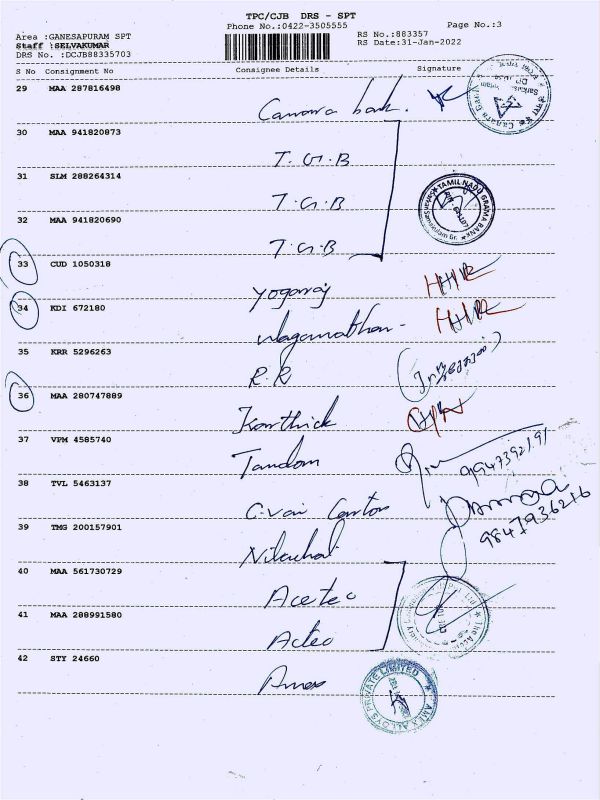 TPC/CJB DRS - SPT
Phone No.:0422-3505555
Page No.:3
Area :GANESAPURAM SPT
RS No.:883357
Staff :SELVAKUMAR
RS Date:31-Jan-2022
DRS No. :DCJB88335703
S No Consignment No Consignee Details Signature
29 MAA 287816498
Canara bank.
30 MAA 941820873
T.G.B
31 SLM 288264314
T.G.B
TAMIL NADU GRAMA BANK
32 MAA 941820690
T.G.B
33 CUD 1050318
Yogaraj
34 KDI 672180
35 KRR 5296263
R.R
36 MAA 280747889
Karthick
37 VPM 4585740
Tandom
9947392191
38 TVL 5463137
9847936216
39 TMG 200157901
40 MAA 561730729
Acetec
41 MAA 288991580
Actec
42 STY 24660
AMEX ALLOYS PRIVATE LIMITED